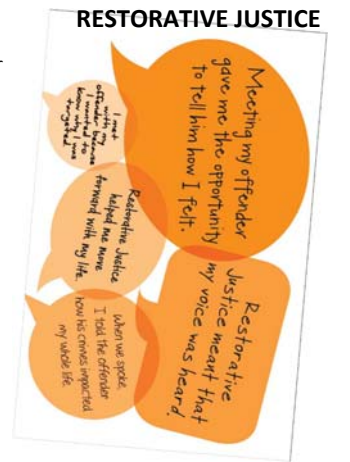 RESTORATIVE JUSTICE
Meeting my offender
gave me the opportunity
to tell him how I felt.
Restorative
Justice meant that
my voice was heard!
I met
with my
offender because
I wanted to
know why I was
targeted.
Restorative Justice
helped me move
forward with my life.
When we spoke,
I told the offender
how his crimes impacted
my whole life